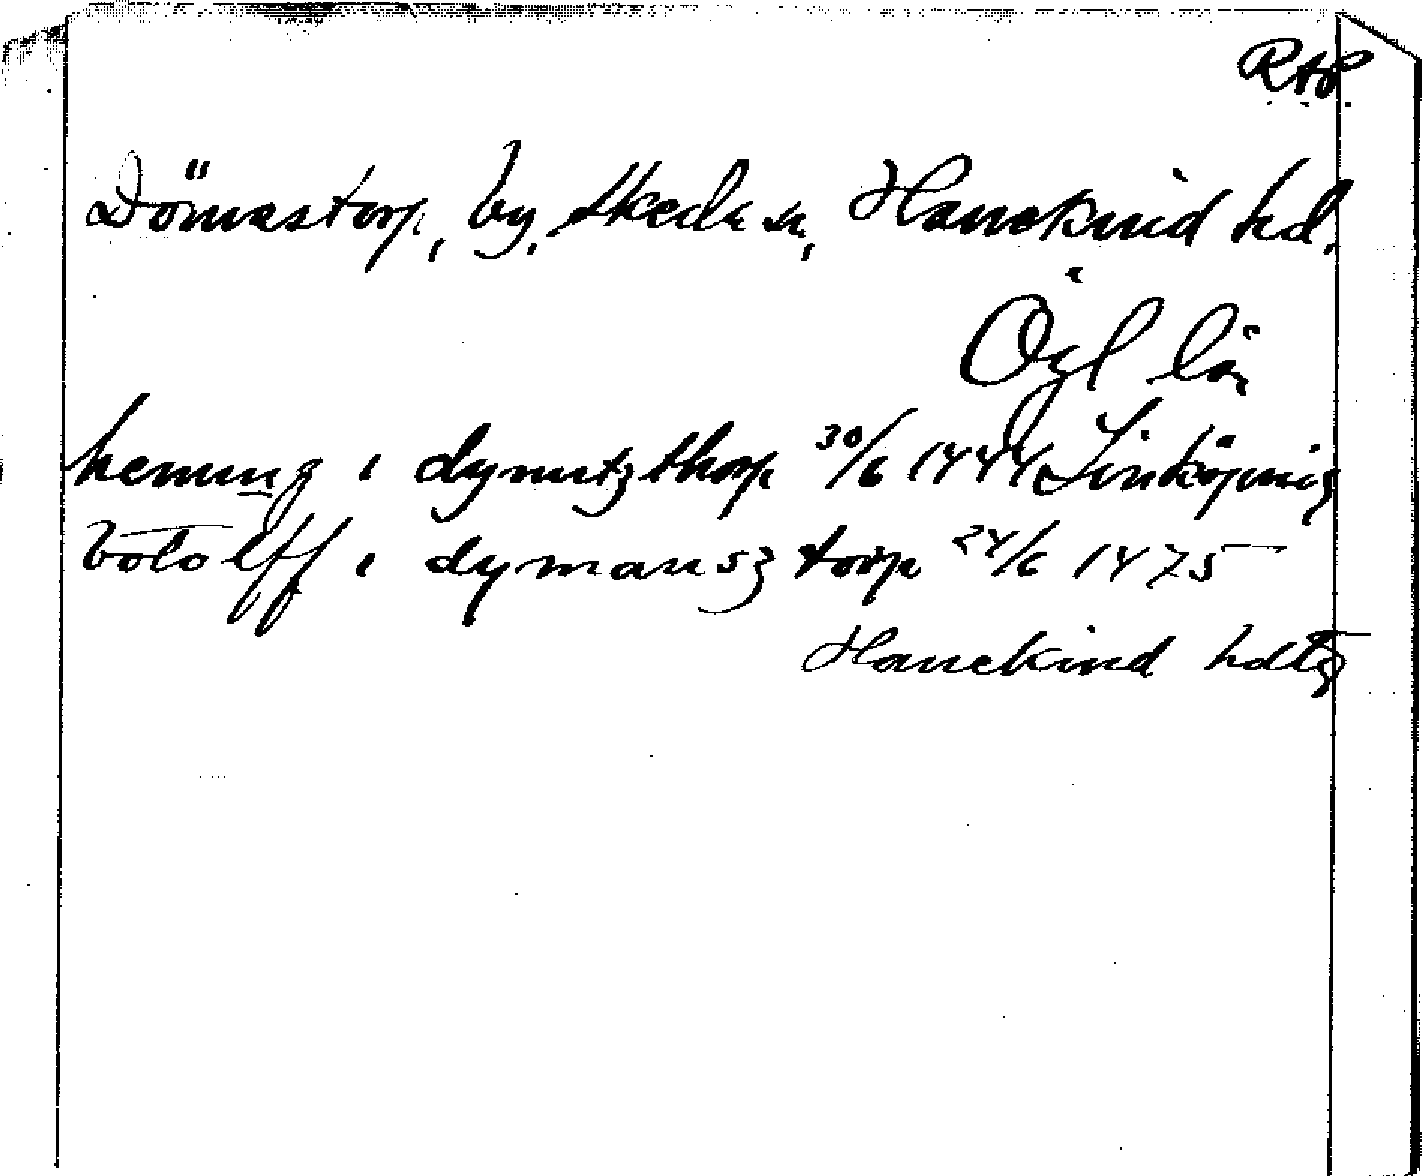 RAP.
Dömestorp, by, Skeda sn, Hanekind hd.
Ögl län
hemmig i dymitzthorp 30/6 1444 Linköping
botolff i dymansztorp 24/6 1475
Hanekind hdtg